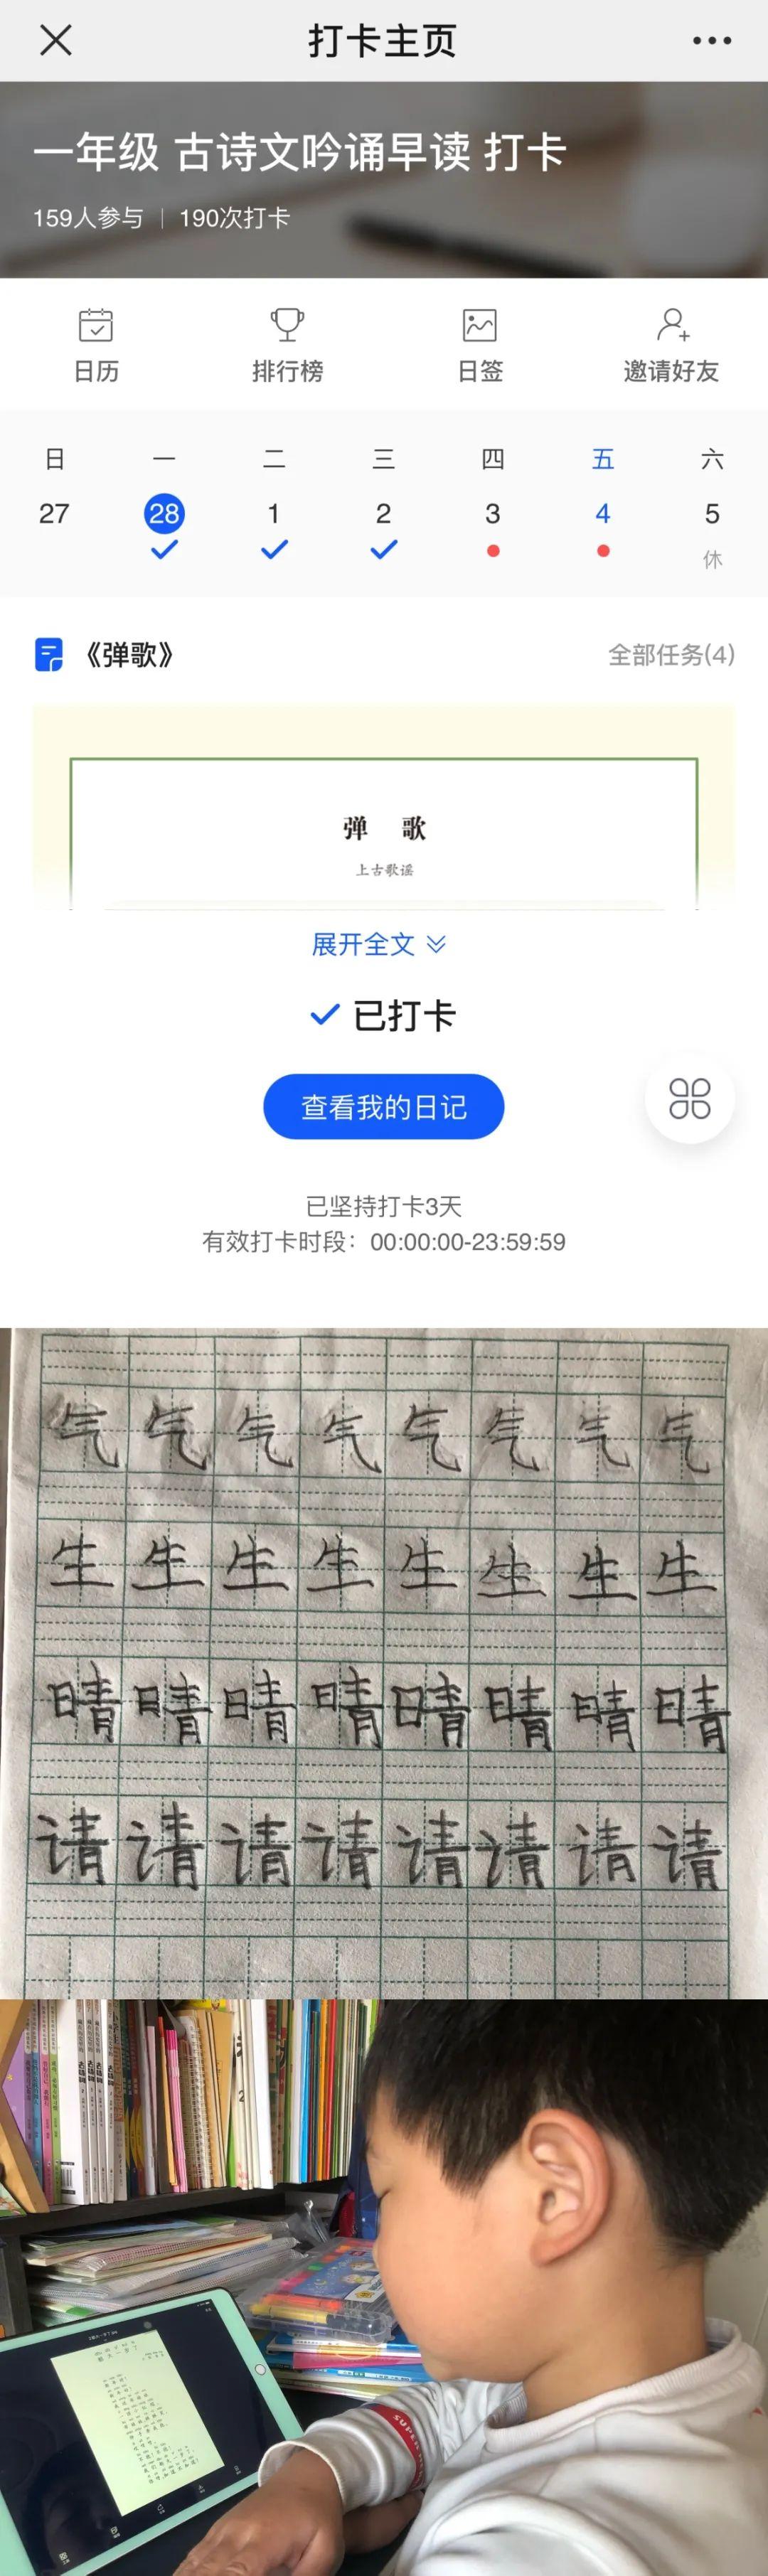 打卡主页
一年级 古诗文吟诵早读 打卡
159人参与 | 190次打卡
日历 排行榜 日签 邀请好友
日 一 二 三 四 五 六
27 28 1 2 3 4 5
休
《弹歌》 全部任务(4)
弹 歌
上古歌谣
展开全文
已打卡
查看我的日记
已坚持打卡3天
有效打卡时段：00:00:00-23:59:59
气 气 气 气 气 气 气 气
生 生 生 生 生 生 生 生
晴 晴 晴 晴 晴 晴 晴 晴
请 请 请 请 请 请 请 请